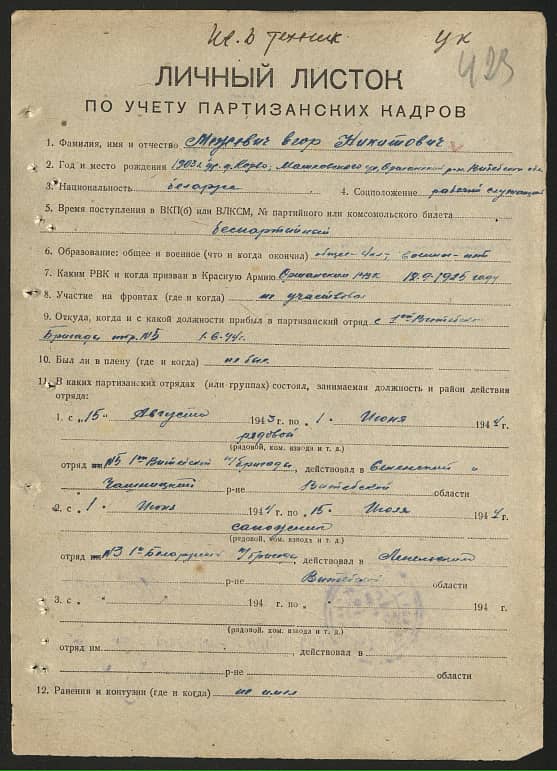 техник ук
423
ЛИЧНЫЙ ЛИСТОК
ПО УЧЕТУ ПАРТИЗАНСКИХ КАДРОВ
1. Фамилия, имя и отчество Егор Никитович
2. Год и место рождения 1903 г. Витебской обл.
3. Национальность беларус 4. Соцположение рабочий служащий
5. Время поступления в ВКП(б) или ВЛКСМ, № партийного или комсомольского билета
беспартийный
6. Образование: общее и военное (что и когда окончил) общее-
7. Каким РВК и когда призван в Красную Армию Оршанским РВК 12.9.1925 году
8. Участие на фронтах (где и когда) не участвовал
9. Откуда, когда и с какой должности прибыл в партизанский отряд с 1ой Витебской
Бригады отр. №5 1-6-44г.
10. Был ли в плену (где и когда) не был
11. В каких партизанских отрядах (или группах) состоял, занимаемая должность и район действия
отряда:
1. с „15" Августа 1943 г. по „1" Июня 1944 г.
рядовой
(рядовой, ком. взвода и т. д.)
отряд им. №5 1ой Витебской п/бригады, действовал в Сененский и
Чашницкий р-не Витебской области
2. с „1" Июня 1944 г. по „15" Июля 1944 г.
(рядовой, ком. взвода и т. д.)
отряд им. №3 1ой Белорусской п/бригада, действовал в Лепельский
р-не Витебской области
3. с 194 г. по 194 г.
(рядовой, ком. взвода и т. д.)
отряд им. действовал в
р-не области
12. Ранения и контузии (где и когда) не имел